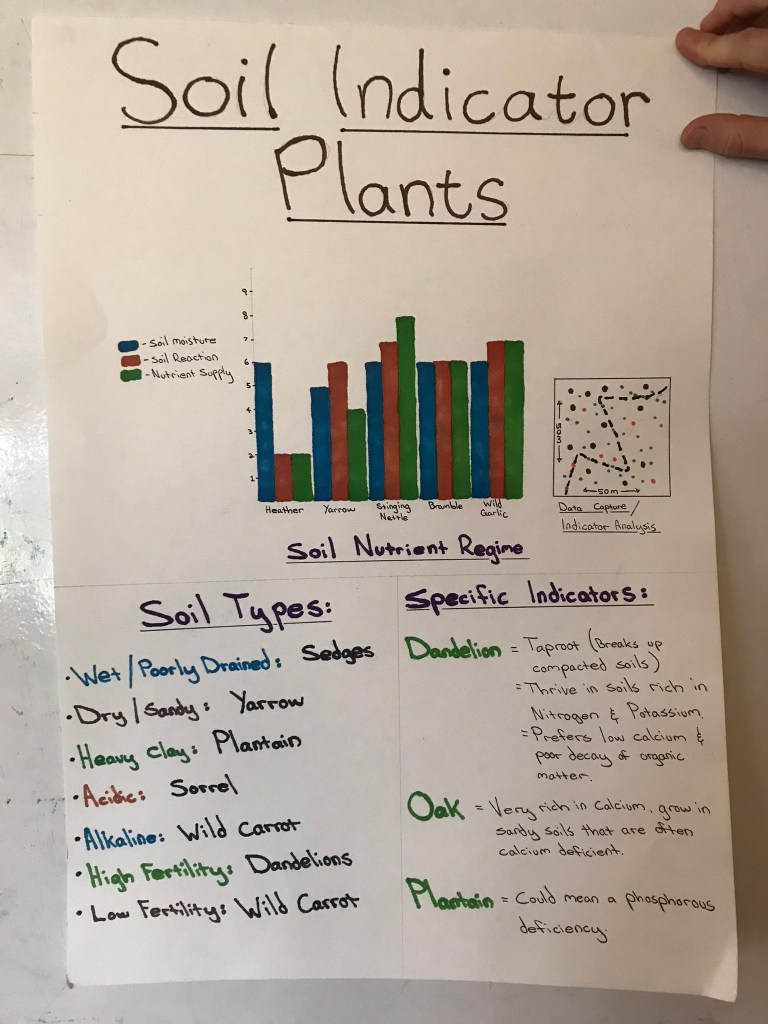 Soil Indicator
Plants
- Soil moisture
- Soil Reaction
- Nutrient Supply
9
8
7
6
5
4
3
2
1
Heather
Yarrow
Stinging
Nettle
Bramble
Wild
Garlic
Soil Nutrient Regime
50m
50m
Data Capture /
Indicator Analysis
Soil Types:
• Wet / Poorly Drained: Sedges
• Dry / Sandy: Yarrow
• Heavy Clay: Plantain
• Acidic: Sorrel
• Alkaline: Wild Carrot
• High Fertility: Dandelions
• Low Fertility: Wild Carrot
Specific Indicators:
Dandelion = Taproot (Breaks up
compacted soils)
= Thrive in soils rich in
Nitrogen & Potassium.
= Prefers low calcium &
poor decay of organic
matter.
Oak = Very rich in calcium, grow in
sandy soils that are often
calcium deficient.
Plantain = Could mean a phosphorous
deficiency.